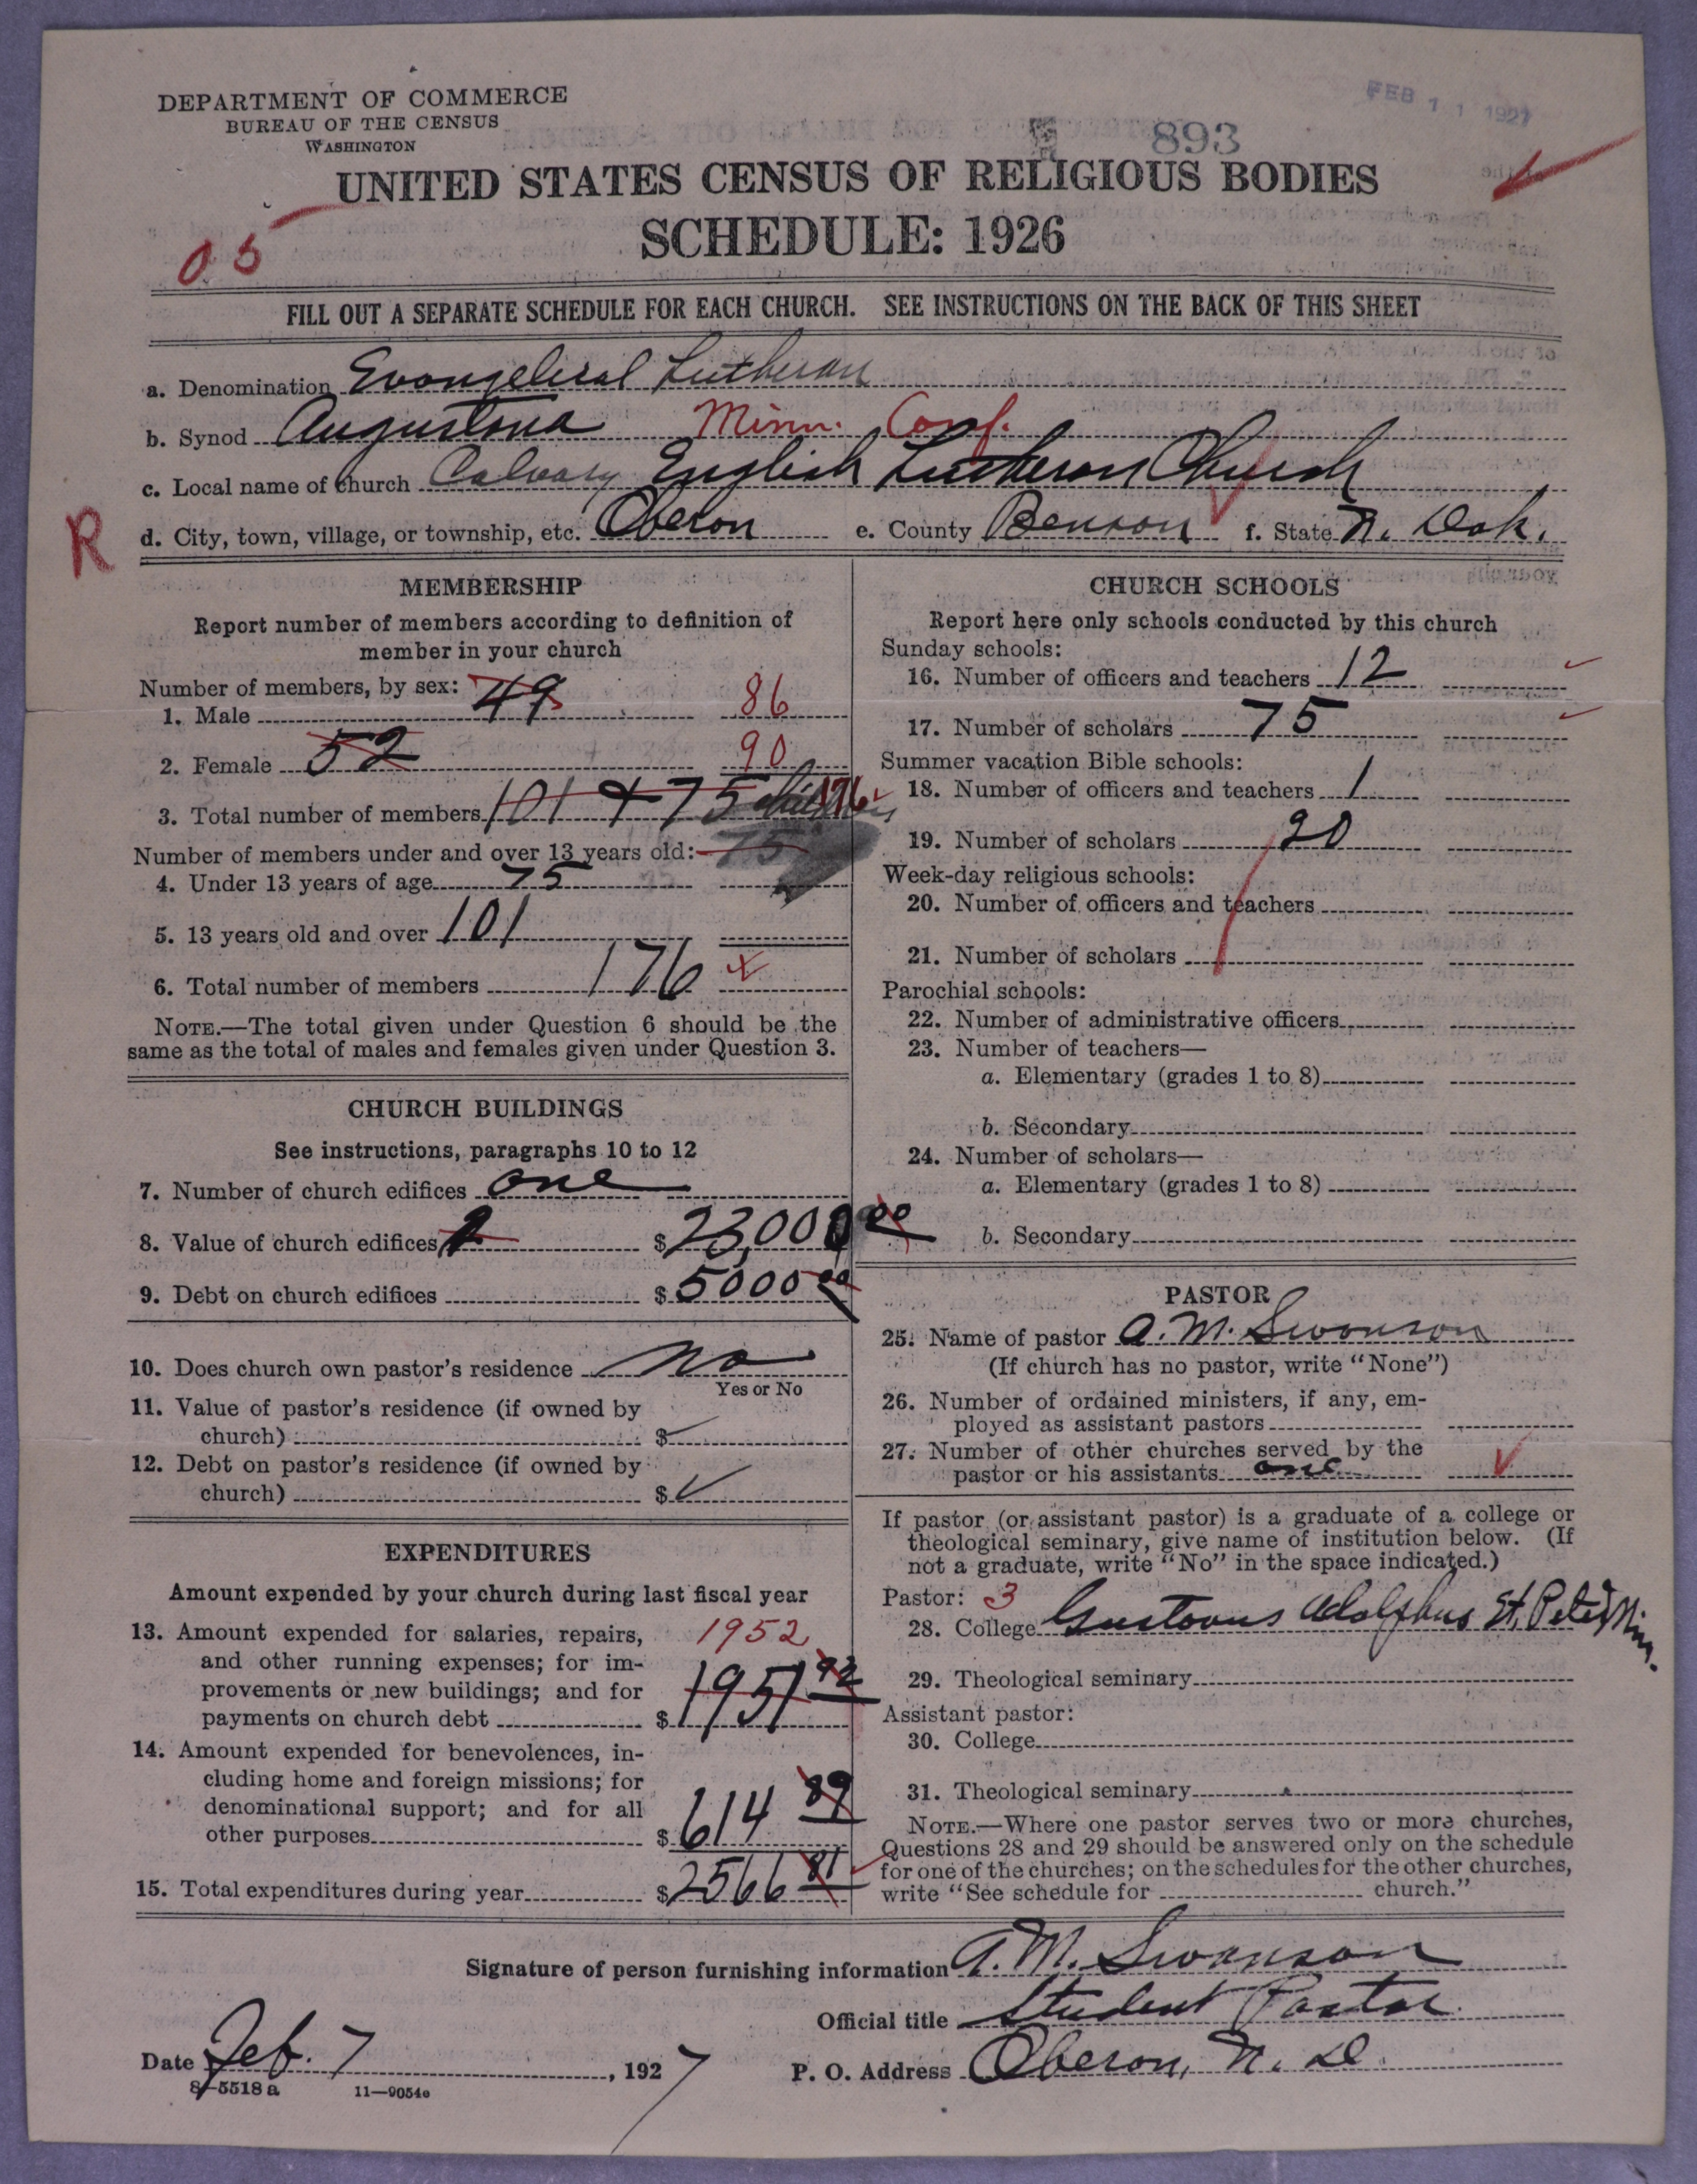 DEPARTMENT OF COMMERCE
BUREAU OF THE CENSUS
WASHINGTON
FEB 11 1927
893
UNITED STATES CENSUS OF RELIGIOUS BODIES
SCHEDULE: 1926
05
FILL OUT A SEPARATE SCHEDULE FOR EACH CHURCH. SEE INSTRUCTIONS ON THE BACK OF THIS SHEET
a. Denomination Evangelical Lutheran
b. Synod Augustana Minn. Conf.
c. Local name of church Calvary English Lutheran Church
R
d. City, town, village, or township, etc. Oberon e. County Benson f. State N. Dak.
MEMBERSHIP
Report number of members according to definition of
member in your church
Number of members, by sex:
1. Male 49 86
2. Female 52 90
3. Total number of members 101 + 75 children 176
Number of members under and over 13 years old: 75
4. Under 13 years of age 75
5. 13 years old and over 101
6. Total number of members 176
NOTE.—The total given under Question 6 should be the
same as the total of males and females given under Question 3.
CHURCH BUILDINGS
See instructions, paragraphs 10 to 12
7. Number of church edifices one
8. Value of church edifices $23,000 00
9. Debt on church edifices $5000 00
10. Does church own pastor's residence No
Yes or No
11. Value of pastor's residence (if owned by
church) $
12. Debt on pastor's residence (if owned by
church) $
EXPENDITURES
Amount expended by your church during last fiscal year
13. Amount expended for salaries, repairs, 1952
and other running expenses; for im-
provements or new buildings; and for
payments on church debt $1951 92
14. Amount expended for benevolences, in-
cluding home and foreign missions; for
denominational support; and for all
other purposes $614 89
15. Total expenditures during year $2566 81
CHURCH SCHOOLS
Report here only schools conducted by this church
Sunday schools:
16. Number of officers and teachers 12
17. Number of scholars 75
Summer vacation Bible schools:
18. Number of officers and teachers 1
19. Number of scholars 20
Week-day religious schools:
20. Number of officers and teachers
21. Number of scholars
Parochial schools:
22. Number of administrative officers
23. Number of teachers—
a. Elementary (grades 1 to 8)
b. Secondary
24. Number of scholars—
a. Elementary (grades 1 to 8)
b. Secondary
PASTOR
25. Name of pastor A. M. Swanson
(If church has no pastor, write "None")
26. Number of ordained ministers, if any, em-
ployed as assistant pastors
27. Number of other churches served by the
pastor or his assistants one
If pastor (or assistant pastor) is a graduate of a college or
theological seminary, give name of institution below. (If
not a graduate, write "No" in the space indicated.)
Pastor: 3
28. College Gustavus Adolphus St. Peter Minn.
29. Theological seminary
Assistant pastor:
30. College
31. Theological seminary
NOTE.—Where one pastor serves two or more churches,
Questions 28 and 29 should be answered only on the schedule
for one of the churches; on the schedules for the other churches,
write "See schedule for church."
Signature of person furnishing information A. M. Swanson
Official title Student Pastor
Date Feb. 7, 1927 P. O. Address Oberon, N. D.
8-5518 a 11-9054e